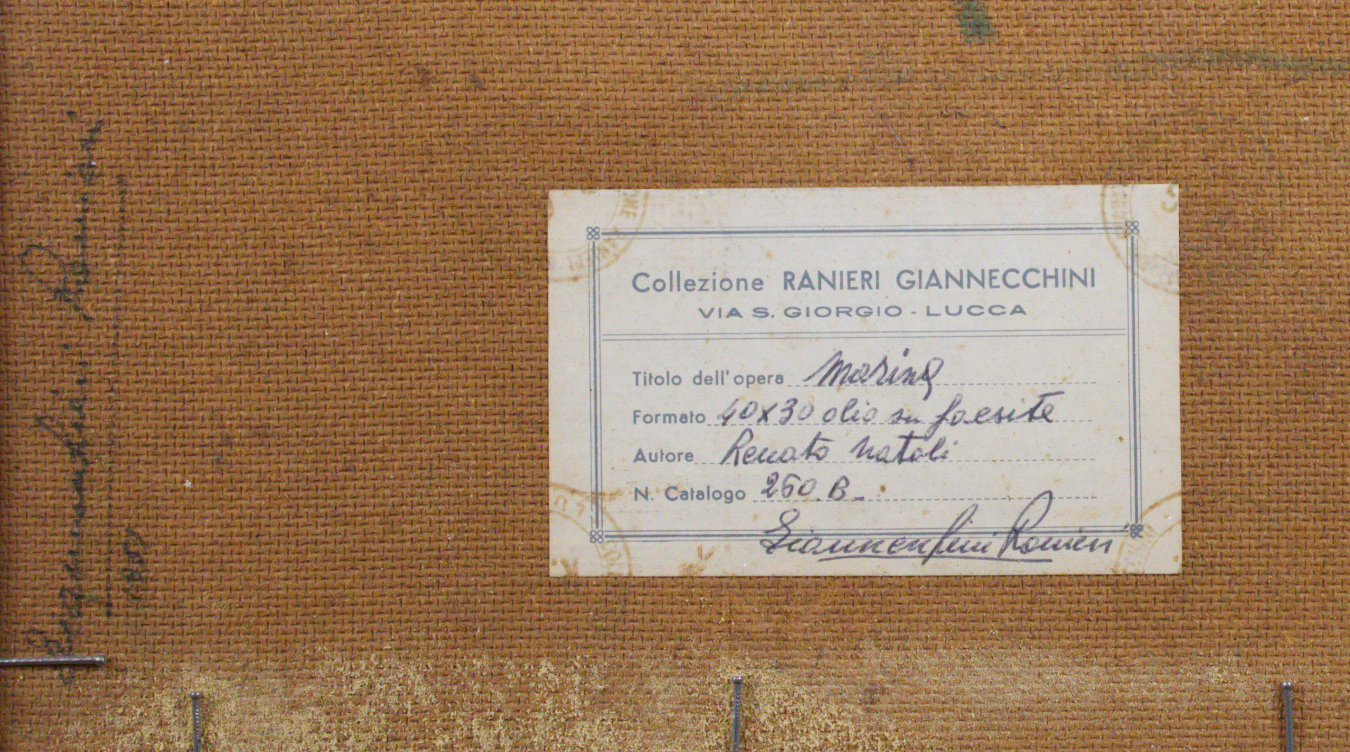 Collezione RANIERI GIANNECCHINI
VIA S. GIORGIO - LUCCA
Titolo dell'opera Marina
Formato 40x30 olio su faesite
Autore Renato Natali
N. Catalogo 260 B.
Giannecchini Ranieri